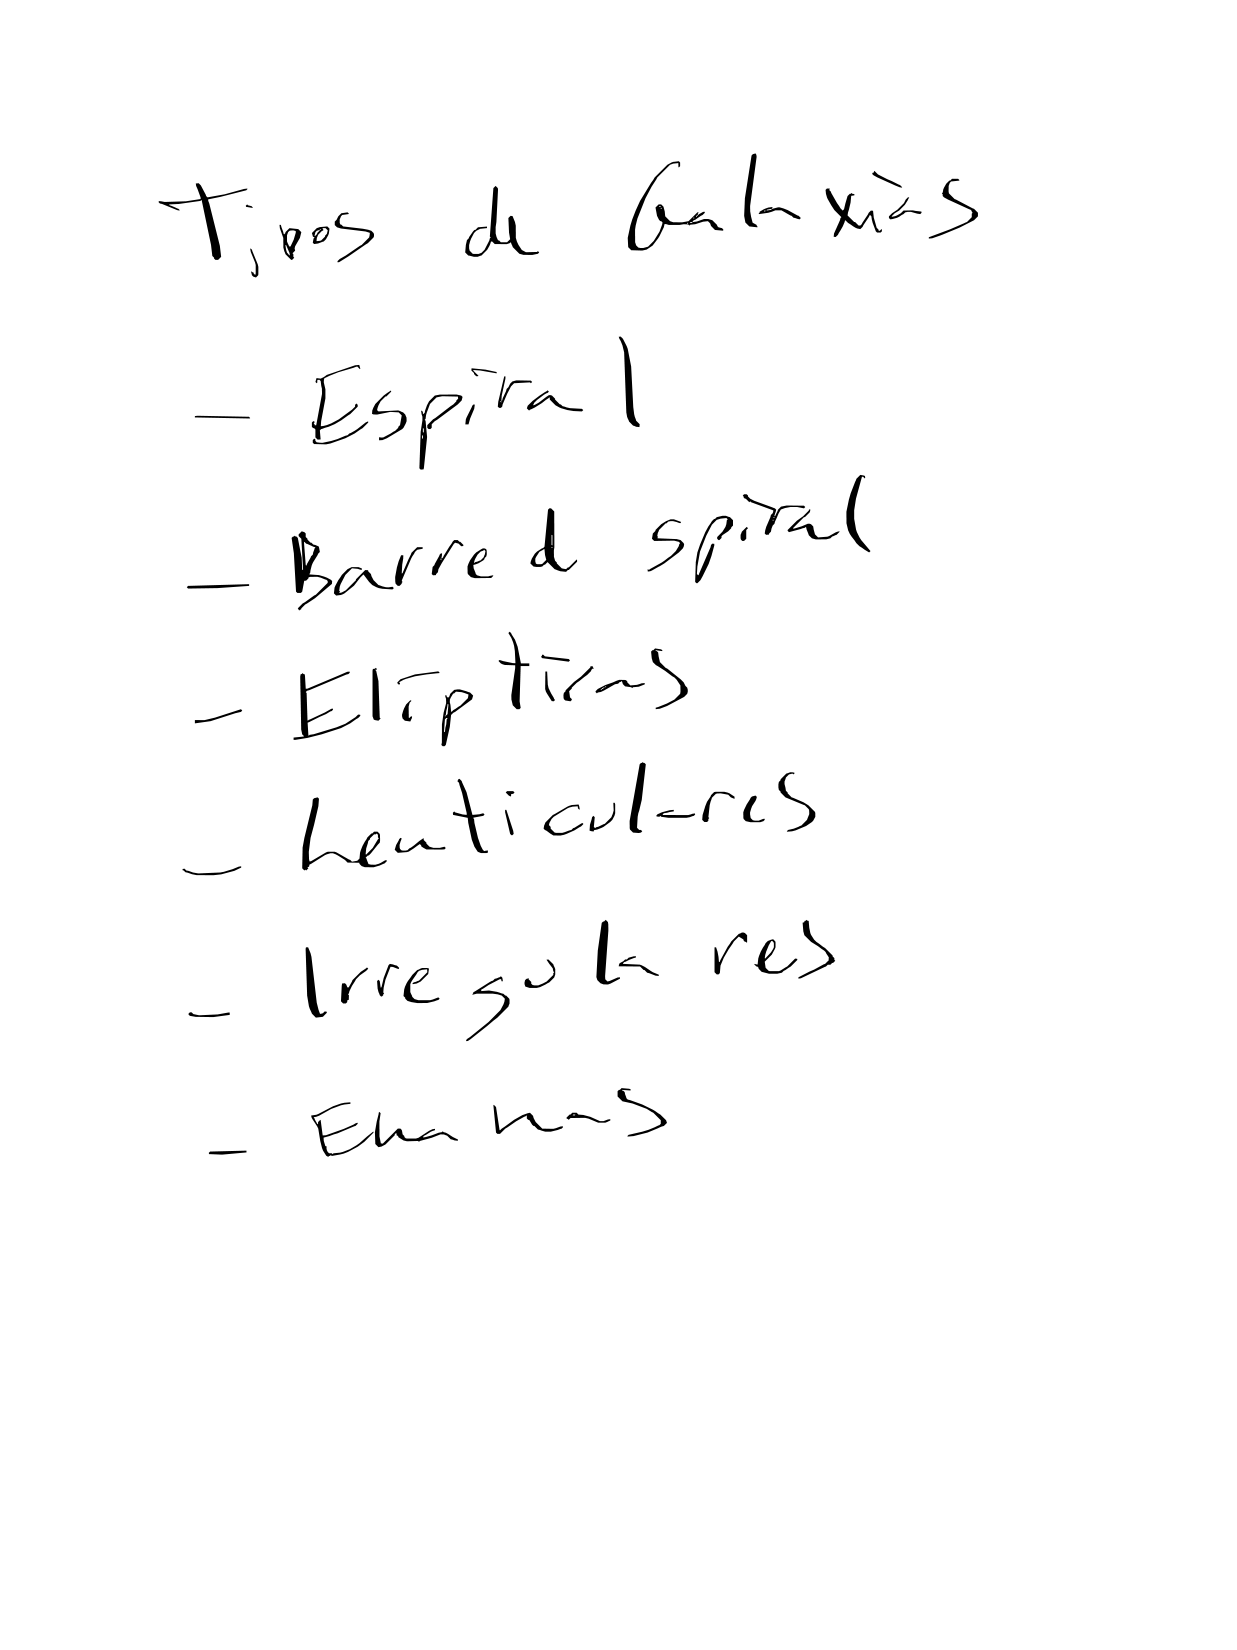 Tipos de Galaxias
- Espiral
- Barred spiral
- Elípticas
- Lenticulares
- Irregulares
- Enanas